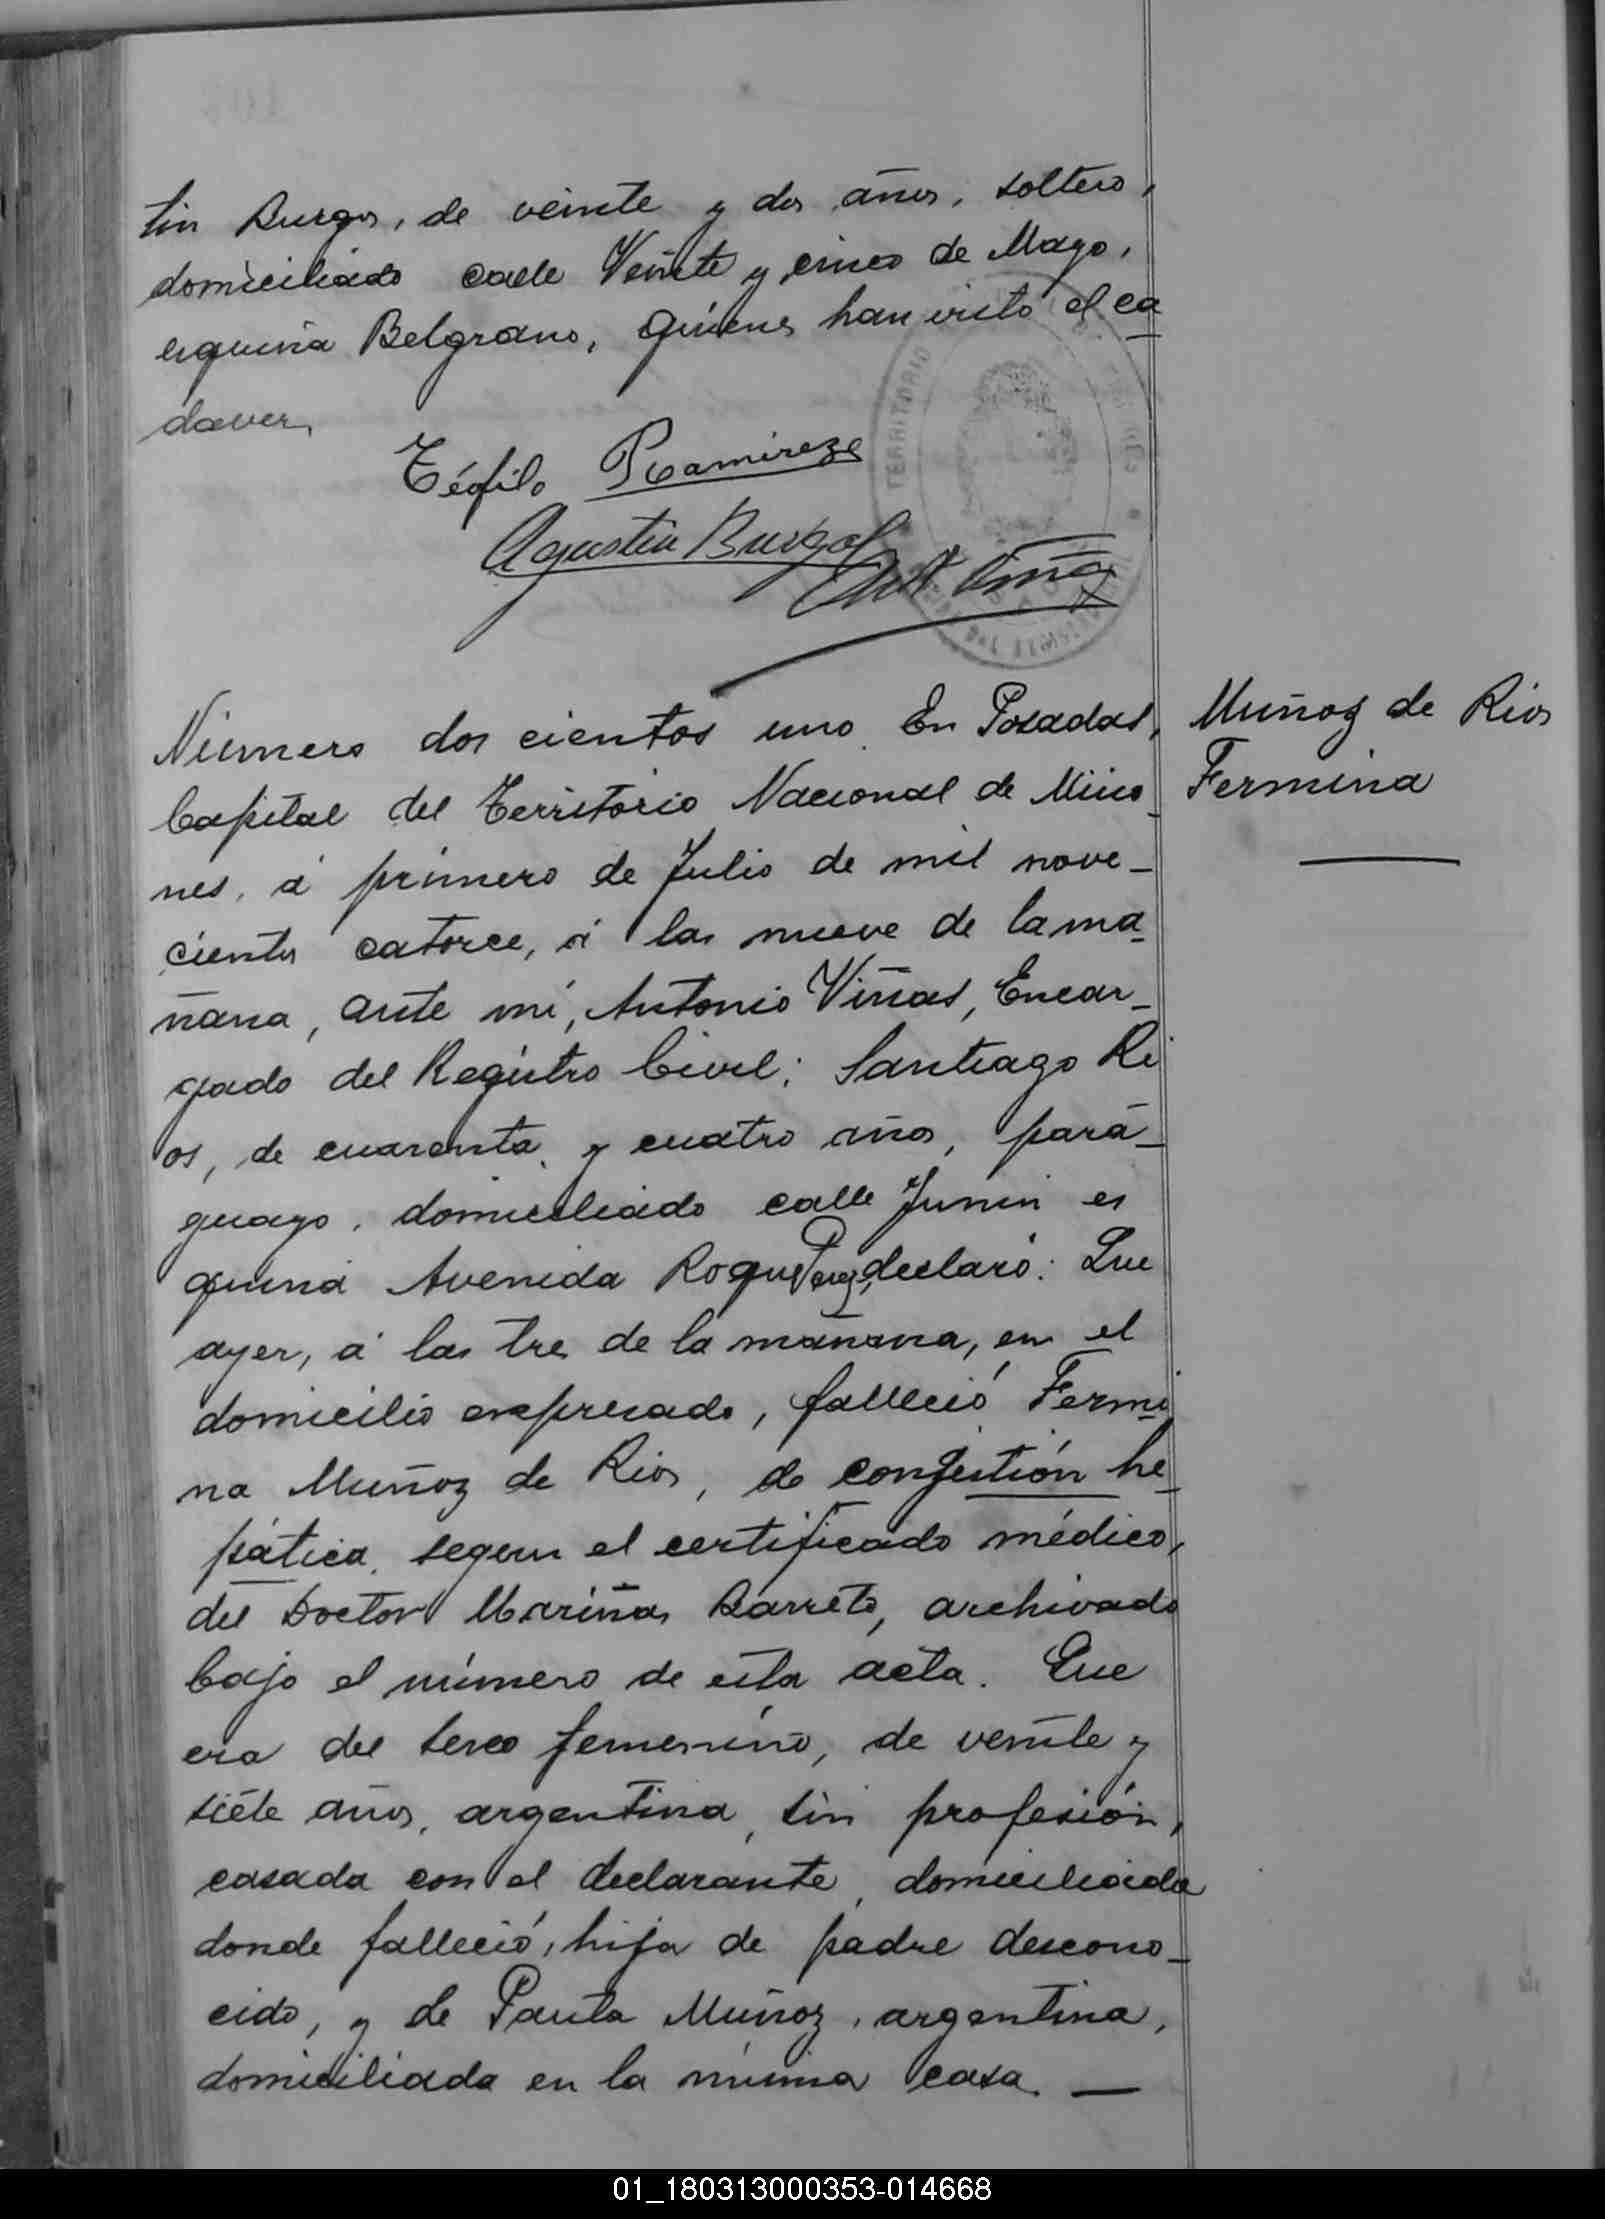 tin Burgos, de veinte y dos años, soltero,
domiciliado calle Veinte y cinco de Mayo,
esquina Belgrano, quienes han visto el ca
daver.
Teófilo Ramirez
Agustin Burgos
Ant Viñas
TERRITORIO
Número dos cientos uno. En Posadas,
Capital del Territorio Nacional de Misio
nes, á primero de Julio de mil nove-
cientos catorce, á las nueve de la ma
ñana, ante mí, Antonio Viñas, Encar-
gado del Registro Civil; Santiago Ri
os, de cuarenta y cuatro años, para-
guayo, domiciliado calle Junin es
quina Avenida Roque Perez, declaró: Que
ayer, á las tres de la mañana, en el
domicilio expresado, falleció Fermi
na Muñoz de Rios, de congestión he
pática, segun el certificado médico,
del Doctor Mariñas Barreto, archivado
bajo el número de esta acta. Que
era del sexo femenino, de veinte y
siete años, argentina, sin profesión,
casada con el declarante, domiciliada
donde falleció, hija de padre descono-
cido, y de Paula Muñoz, argentina,
domiciliada en la misma casa. —
Muñoz de Rios
Fermina
01_180313000353-014668